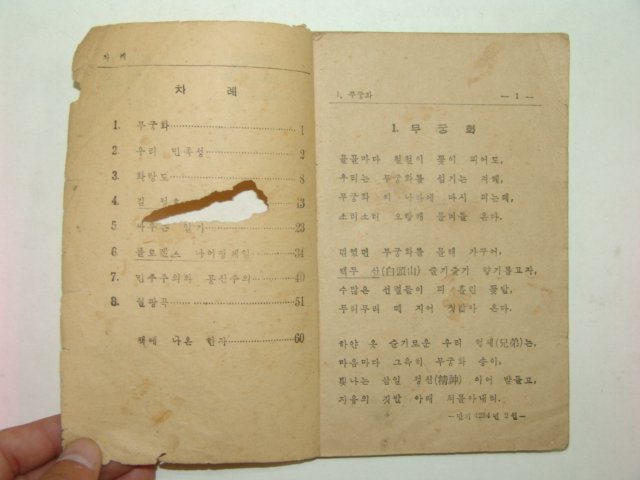 차 례
차 례
1. 무궁화 1
2. 우리 민족성 2
3. 화랑도 8
4. 길 13
5. 일기 23
6. 플로렌스 나이팅게일 34
7. 민주주의와 공산주의 40
8. 월광곡 51
책에 나온 한자 60
1. 무궁화 — 1 —
1. 무 궁 화
꽃이 피어도,
우리는 무궁화를 섬기는 겨레,
무궁화 피 나라에 다시 피는데,
소리소리 들려 온다.
무궁화를 가꾸어,
백두 산(白頭山) 줄기줄기 향기롭고자,
수많은 선열들이 피 흘린 꽃밭,
무리무리 떼 지어 온다.
하얀 옷 슬기로운 우리 형제(兄弟)는,
마음마다 그윽히 무궁화 송이,
빛나는 삼일 정신(精神) 이어 받들고,
자유의 깃발 아래
—단기 4284년 2월—